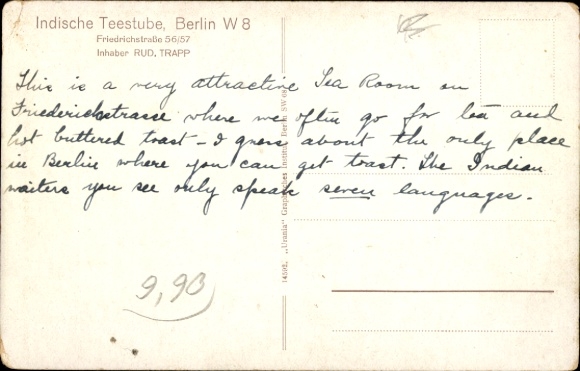 Indische Teestube, Berlin W 8
Friedrichstraße 56/57
Inhaber RUD, TRAPP
This is a very attractive Tea Room on
Friederichstrasse where we often go for tea and
hot buttered toast - I guess about the only place
in Berlin where you can get toast. The Indian
waiters you see only speak seven languages.
14592. „Urania" Graphisches Institut, Berlin SW 68
9,90